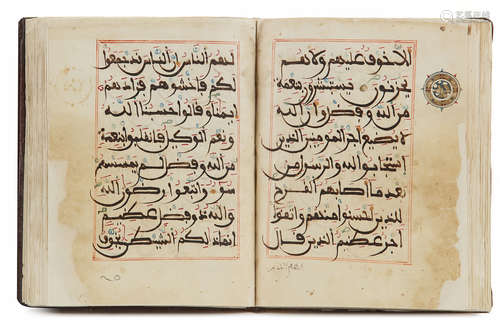 ألا خوف عليهم ولا هم
يحزنون يستبشرون بنعمة
من الله وفضل وأن الله
لا يضيع أجر المؤمنين الذين
استجابوا لله والرسول من
بعد ما أصابهم القرح
للذين أحسنوا منهم واتقوا
أجر عظيم الذين قال
لهم الناس إن الناس قد جمعوا
لكم فاخشوهم فزادهم
إيمنا وقالوا حسبنا الله
ونعم الوكيل فانقلبوا بنعمة
من الله وفضل لم يمسسهم
سوء واتبعوا رضون الله
والله ذو فضل عظيم
إنما ذلكم الشيطن يخوف